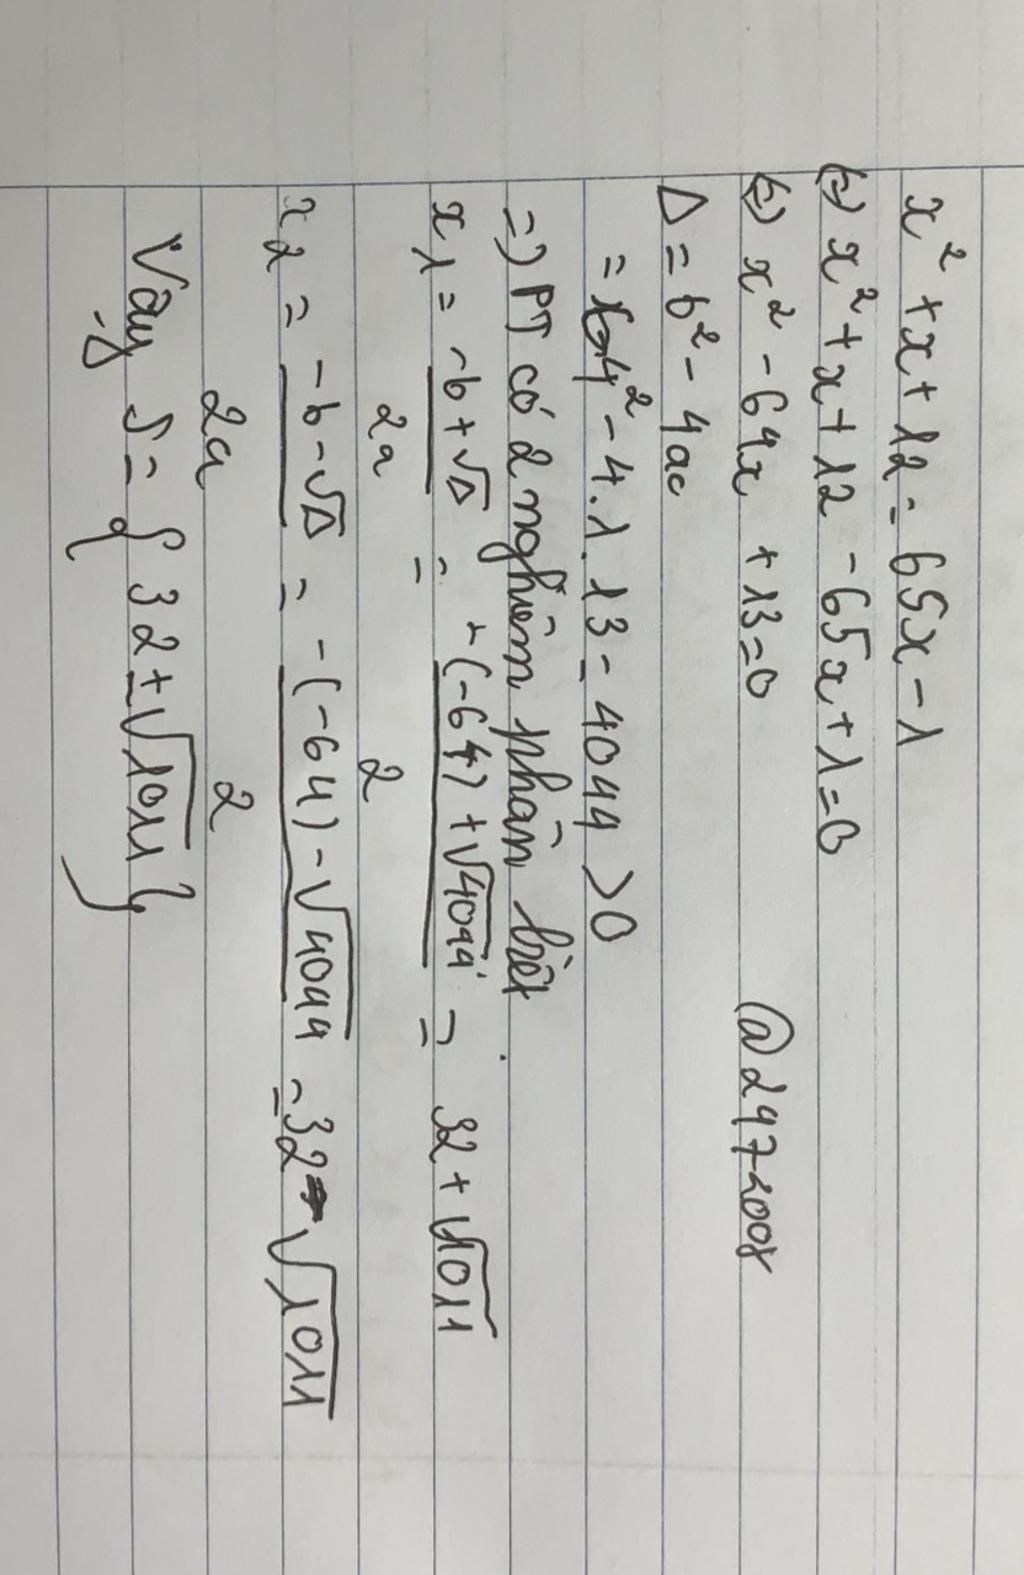 x² + x + 12 = 65x - 1
(=) x² + x + 12 - 65x + 1 = 0
(=) x² - 64x + 13 = 0
@2472008
Δ = b² - 4ac
= 64² - 4.1.13 = 4044 > 0
=> PT có 2 nghiệm phân biệt
x1 = -b + √Δ / 2a = -(-64) + √4044 / 2 = 32 + √1011
x2 = -b - √Δ / 2a = -(-64) - √4044 / 2 = 32 - √1011
Vậy S = { 32 ± √1011 }